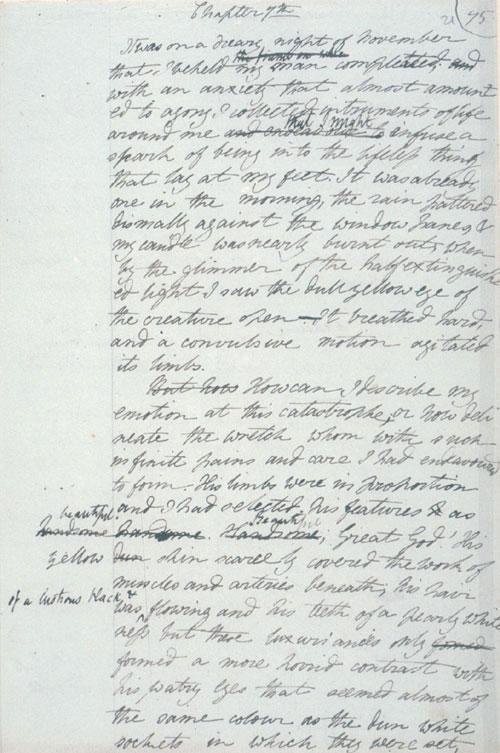 Chapter 7th
21 95
It was on a dreary night of November
that I beheld the frame on whic my man compleated, and
with an anxiety that almost amount
ed to agony I collected instruments of life
around me and endeavour to that I might infuse a
spark of being into the lifeless thing
that lay at my feet. It was already
one in the morning, the rain pattered
dismally against the window panes, &
my candle was nearly burnt out, when
by the glimmer of the half extinguish
ed light I saw the dull yellow eye of
the creature open. It breathed hard,
and a convulsive motion agitated
its limbs.
But how How can I describe my
emotion at this catastrophe, or how deli
neate the wretch whom with such
infinite pains and care I had endeavoured
to form. His limbs were in proportion
and I had selected his features as
beautiful.
handsome handsome. Handsome, Beautiful; Great God! His
yellow dun skin scarcely covered the work of
muscles and arteries beneath; his hair
of a lustrous black, &
was flowing and his teeth of a pearly white
ness but these luxuriances only formed
formed a more horrid contrast with
his watry eyes that seemed almost of
the same colour as the dun white
sockets in which they were set